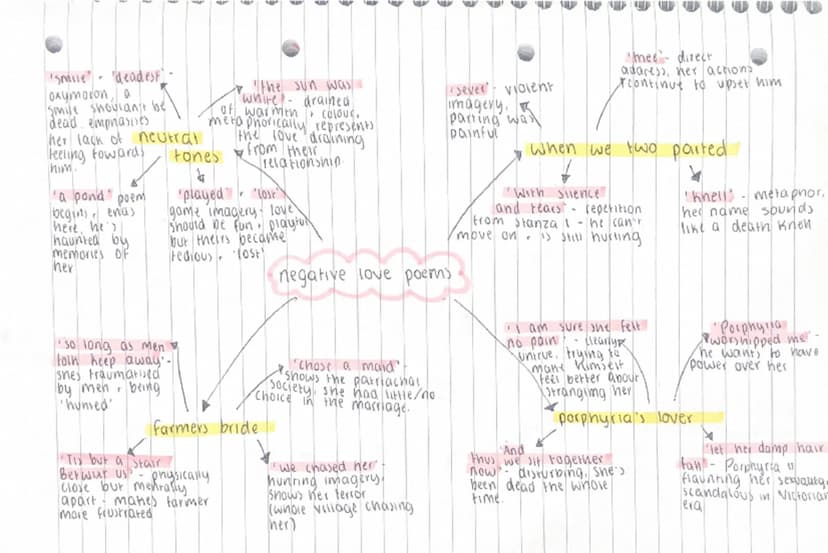 'smile' - 'deadest' -
oxymoron, a
smile shouldn't be
dead emphasises
her lack of
feeling towards
him.
neutral
tones
'the sun was
white' - drained
of warmth + colour,
metaphorically represents
the love draining
from their
relationship
'a pond' poem
begins + ends
here, he's
haunted by
memories of
her
'played' + 'lost'
game imagery - love
should be fun + playful
but theirs became
tedious + 'lost'
'sever' - violent
imagery,
parting was
painful
'thee' - direct
address, her actions
continue to upset him
when we two parted
'with silence
and tears' - repetition
from stanza 1 - he can't
move on + is still hurting
'knell' - metaphor,
her name sounds
like a death knell
negative love poems
'so long as men
folk keep away' -
shes traumatised
by men + being
'hunted'
'chose a maid' -
shows the patriachal
society, she had little/no
choice in the marriage.
farmers bride
'Tis but a stair
Betwixt us' - physically
close but mentally
apart - makes farmer
more frustrated
'we chased her' -
hunting imagery,
shows her terror
(whole village chasing
her)
'I am sure she felt
no pain' - clearly
untrue, trying to
make himself
feel better about
strangling her
'Porphyria
worshipped me' -
he wants to have
power over her
porphyria's lover
'And
thus we sit together
now' - disturbing, she's
been dead the whole
time.
'let her damp hair
fall' - Porphyria is
flaunting her sexuality,
scandalous in Victorian
era